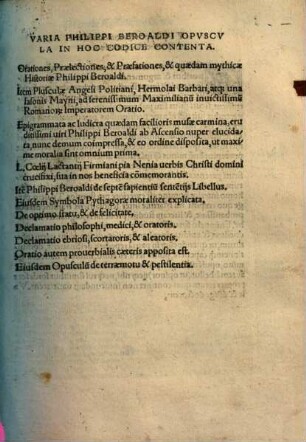 VARIA PHILIPPI BEROALDI OPVSCV
LA IN HOC CODICE CONTENTA.
Orationes, Prælectiones, & Præfationes, & quædam mythicæ
Historiæ Philippi Beroaldi.
Itēm Plusculæ Angeli Politiani, Hermolai Barbari, atq; una
Iasonis Mayni, ad serenissimum Maximilianū inuictissimū
Romanorū Imperatorem Oratio.
Epigrammata ac ludicra quædam facilioris musæ carmina, eru
ditissimi uiri Philippi Beroaldi ab Ascensio nuper elucida
ta, nunc demum coimpressa, & eo ordine disposita, ut maxi
me moralia sint omnium prima.
L. Cœlij Lactantij Firmiani pia Nenia uerbis Christi domini
crucifixi, sua in nos beneficia cōmemorantis.
Itē Philippi Beroaldi de septē sapientiū sententijs Libellus.
Eiusdem Symbola Pythagoræ moraliter explicata,
De optimo statu, & de felicitate,
Declamatio philosophi, medici, & oratoris.
Declamatio ebriosi, scortatoris, & aleatoris.
Oratio autem prouerbialis cæteris apposita est.
Eiusdem Opusculū de terræmotu & pestilentia.